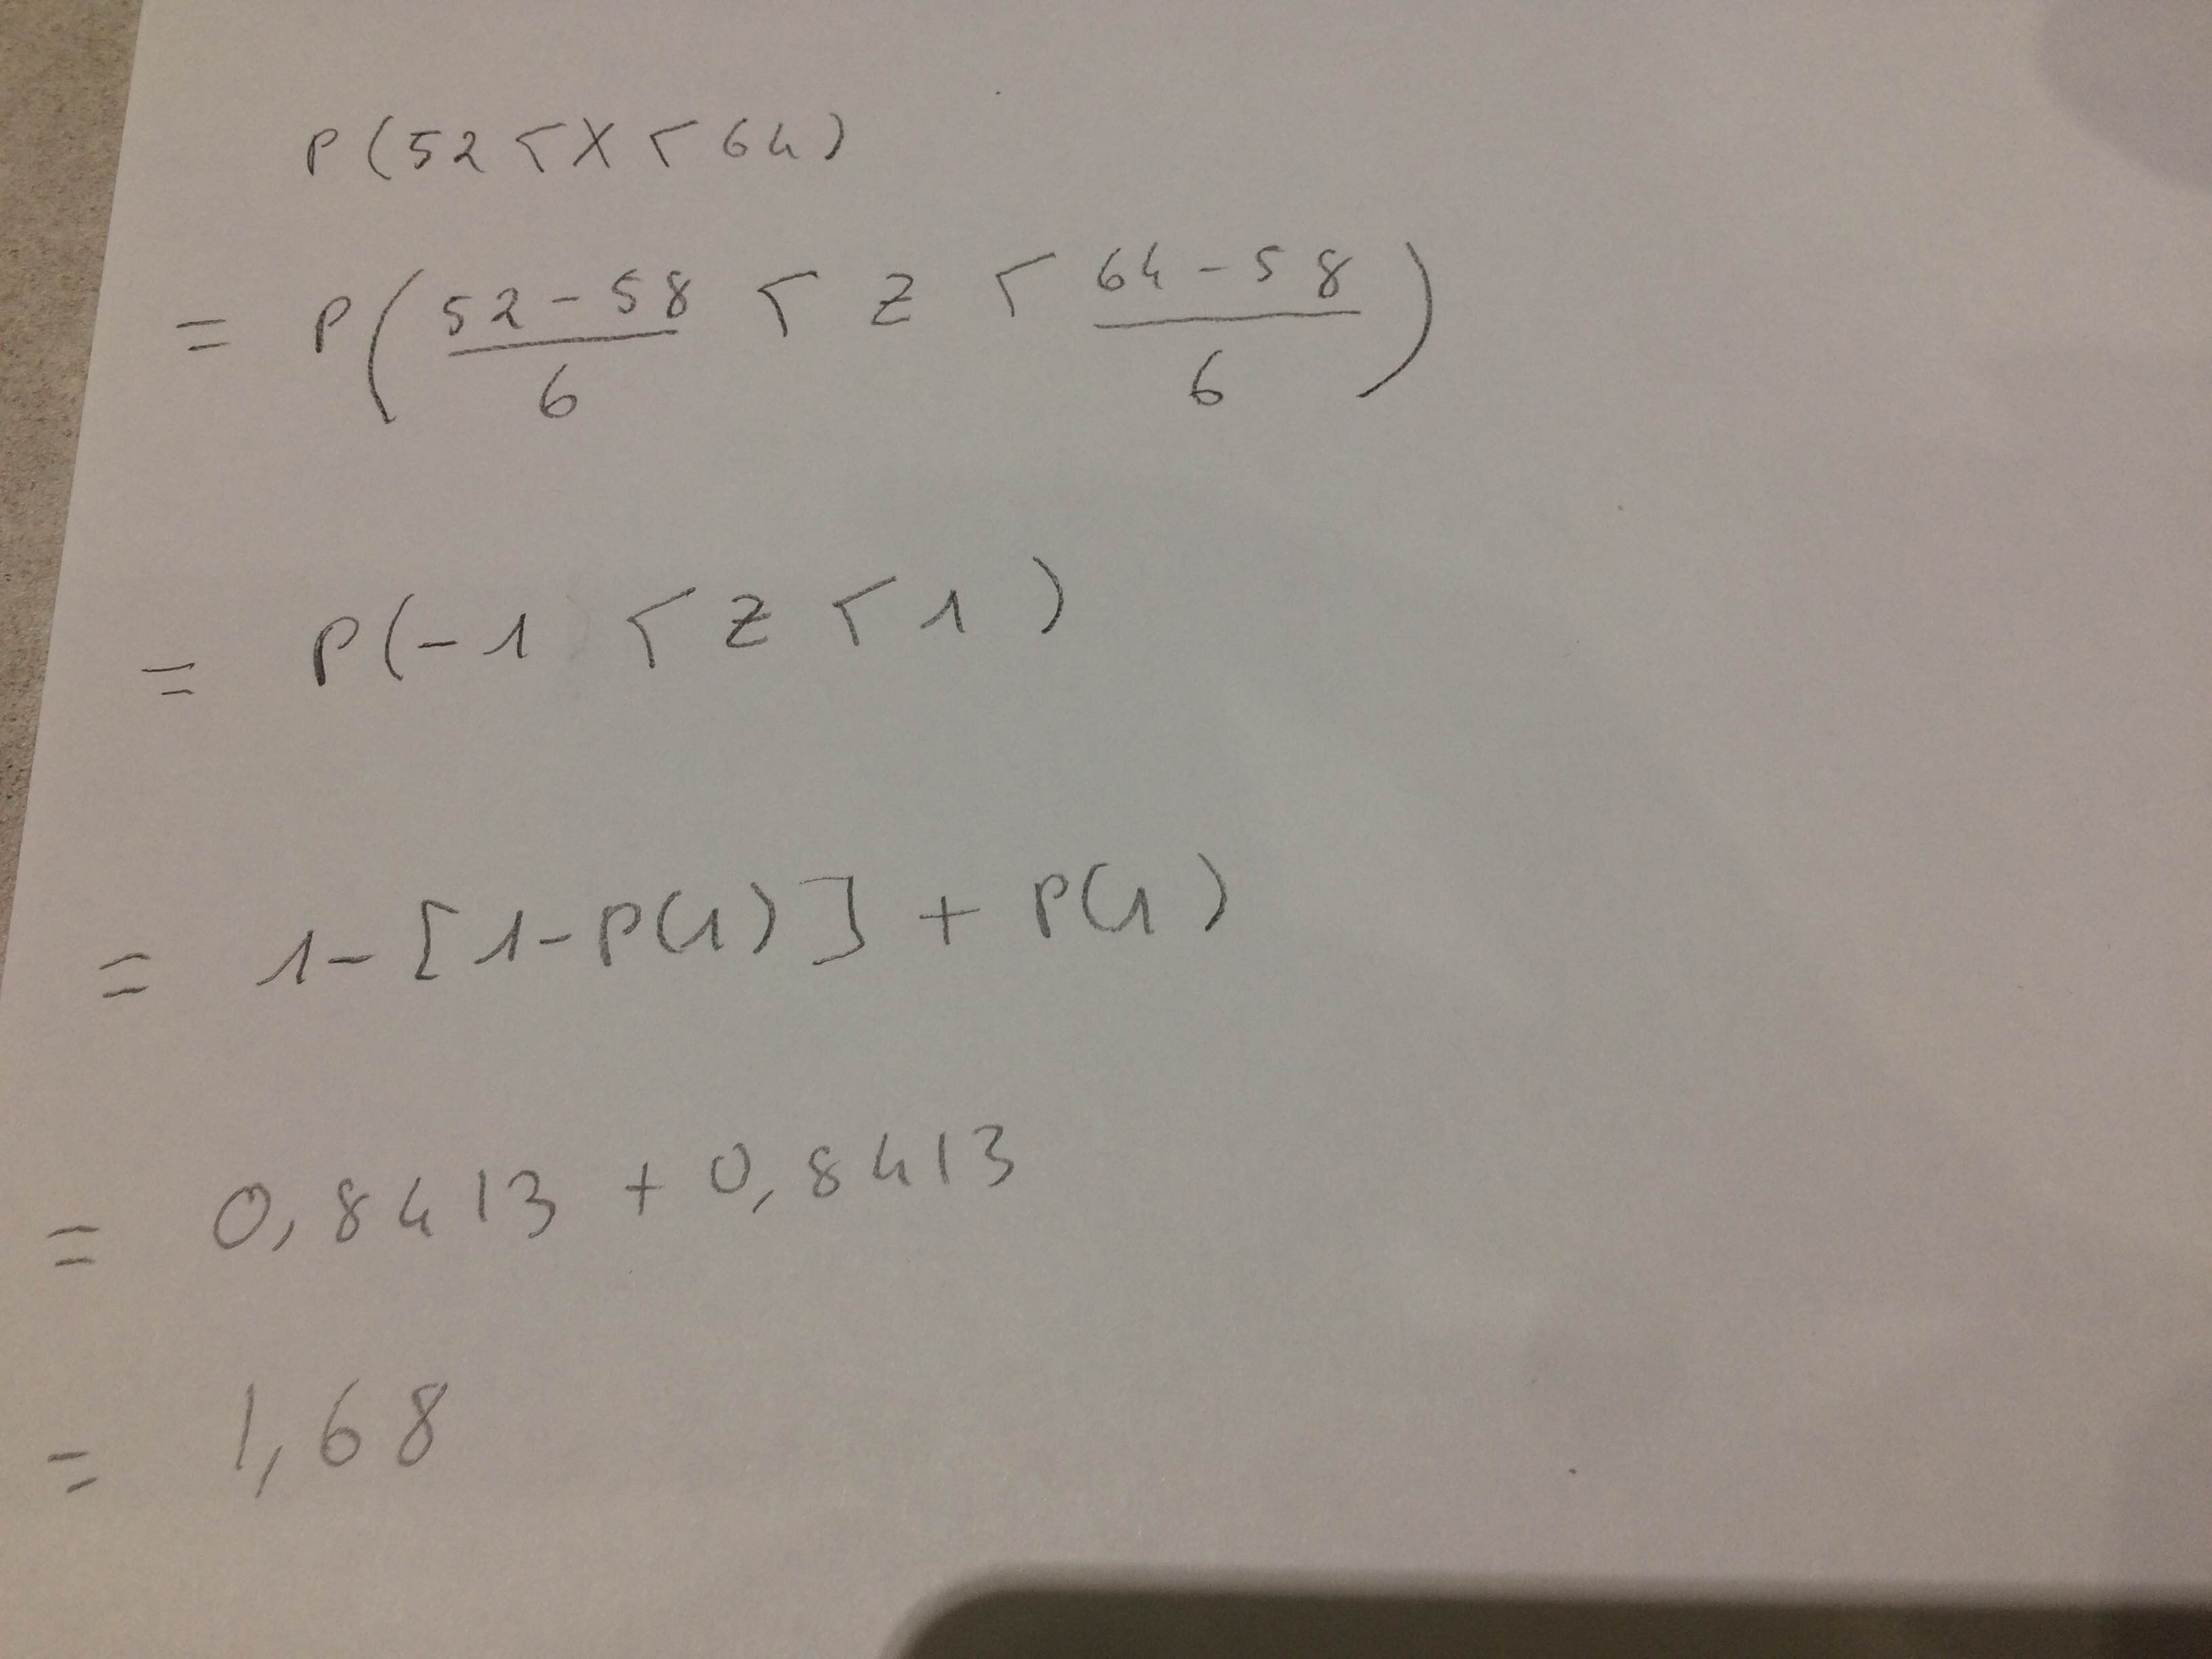 P(52 < X < 64)
= P((52-58)/6 < Z < (64-58)/6)
= P(-1 < Z < 1)
= 1-[1-P(1)] + P(1)
= 0,8413 + 0,8413
= 1,68